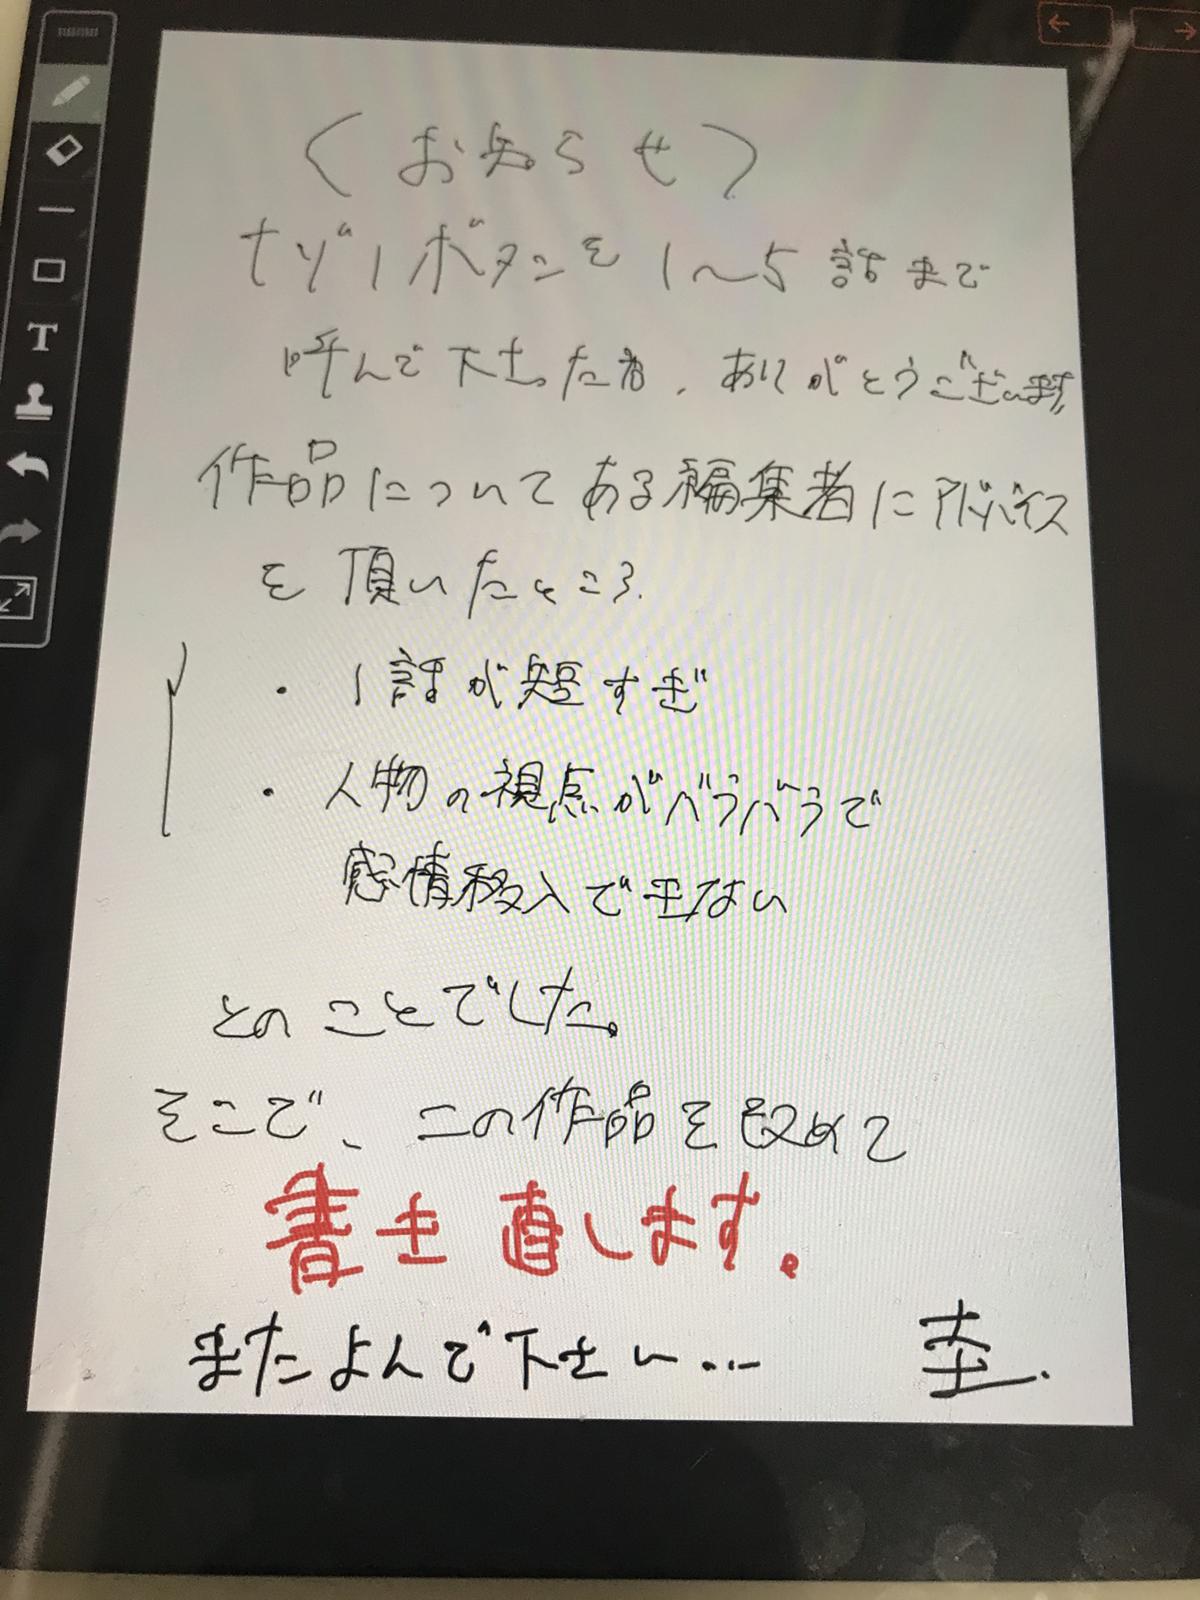 〈お知らせ〉
ボタンを1〜5話まで
呼んで下さった方、ありがとうございます。
作品についてある編集者にアドバイス
を頂いたところ、
・1話が短すぎ
・人物の視点がバラバラで
感情移入できない
とのことでした。
そこで、この作品を改めて
書き直します。
またよんで下さい…
T